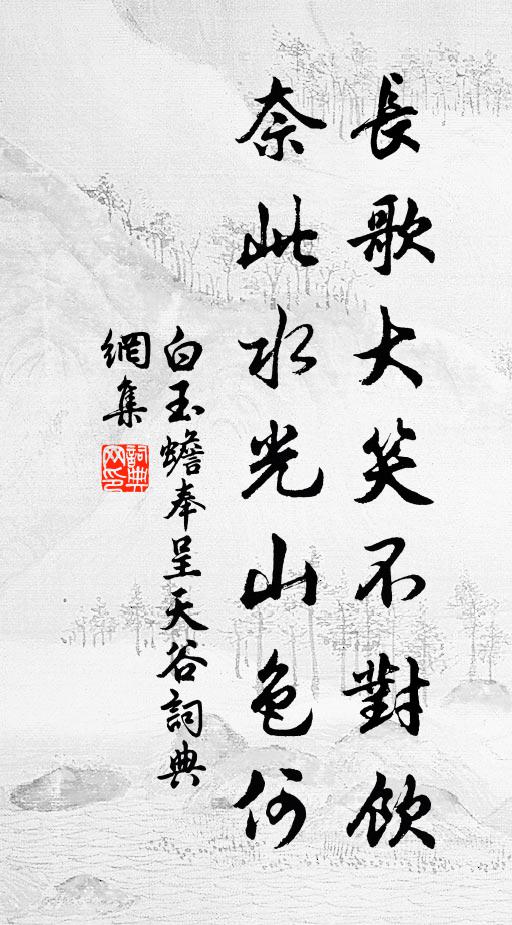 長歌大笑不對飲
奈此水光山色何
白玉蟾奉呈天谷詞典
網集
詞典
网印